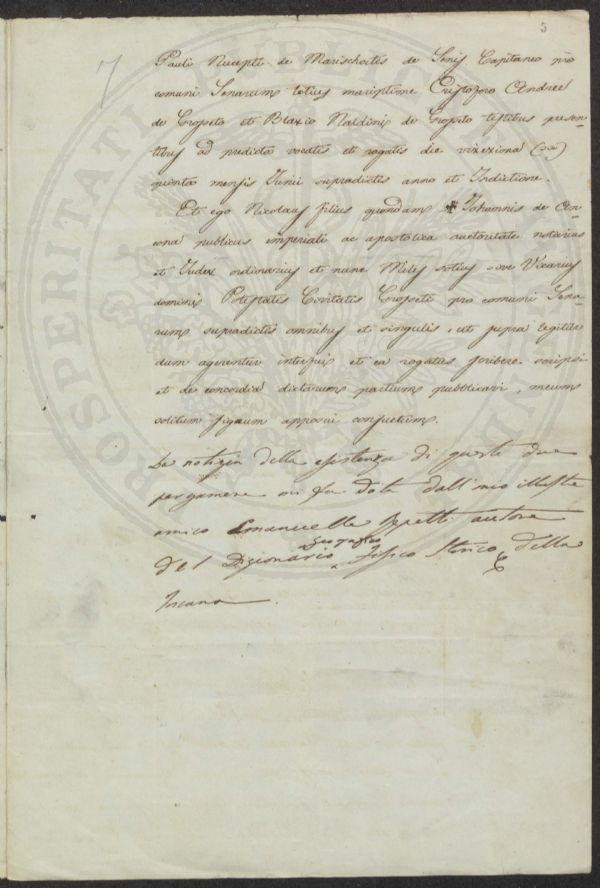 5
7
Pauli Nucepti de Marischottis de Senis Capitaneo pro
comuni Senarum totius mariptime Cristoforo Andree
de Grosseto et Blaxio Naldini de Grosseto testibus presen-
tibus ad predicta vocatis et rogatis die vizexiona (sic)
quinta mensis Junii supradictis anno et Indictione.
Et ego Nicolaus filius quondam ✠ Johannis de An-
cona publicus imperiali ac apostolica auctoritate notarius
et Judex ordinarius et nunc Miles sotius sive Vicarius
domini Potestatis Civitatis Grosseti pro comuni Sena-
rum supradictis omnibus et singulis, ut supra legitur
dum agerentur interfui et ea rogatus scribere scripsi
et de concordia dictarum partium pubblicavi, meum
solitum signum apposui consuetum.
La notizia della esistenza di queste due
pergamene mi fu data dall'mio illustre
amico Emanuelle Repetti autore
Geografico
del Dizionario Fisico Storico della
Toscana.
PROSPERITATI PUBLICAE